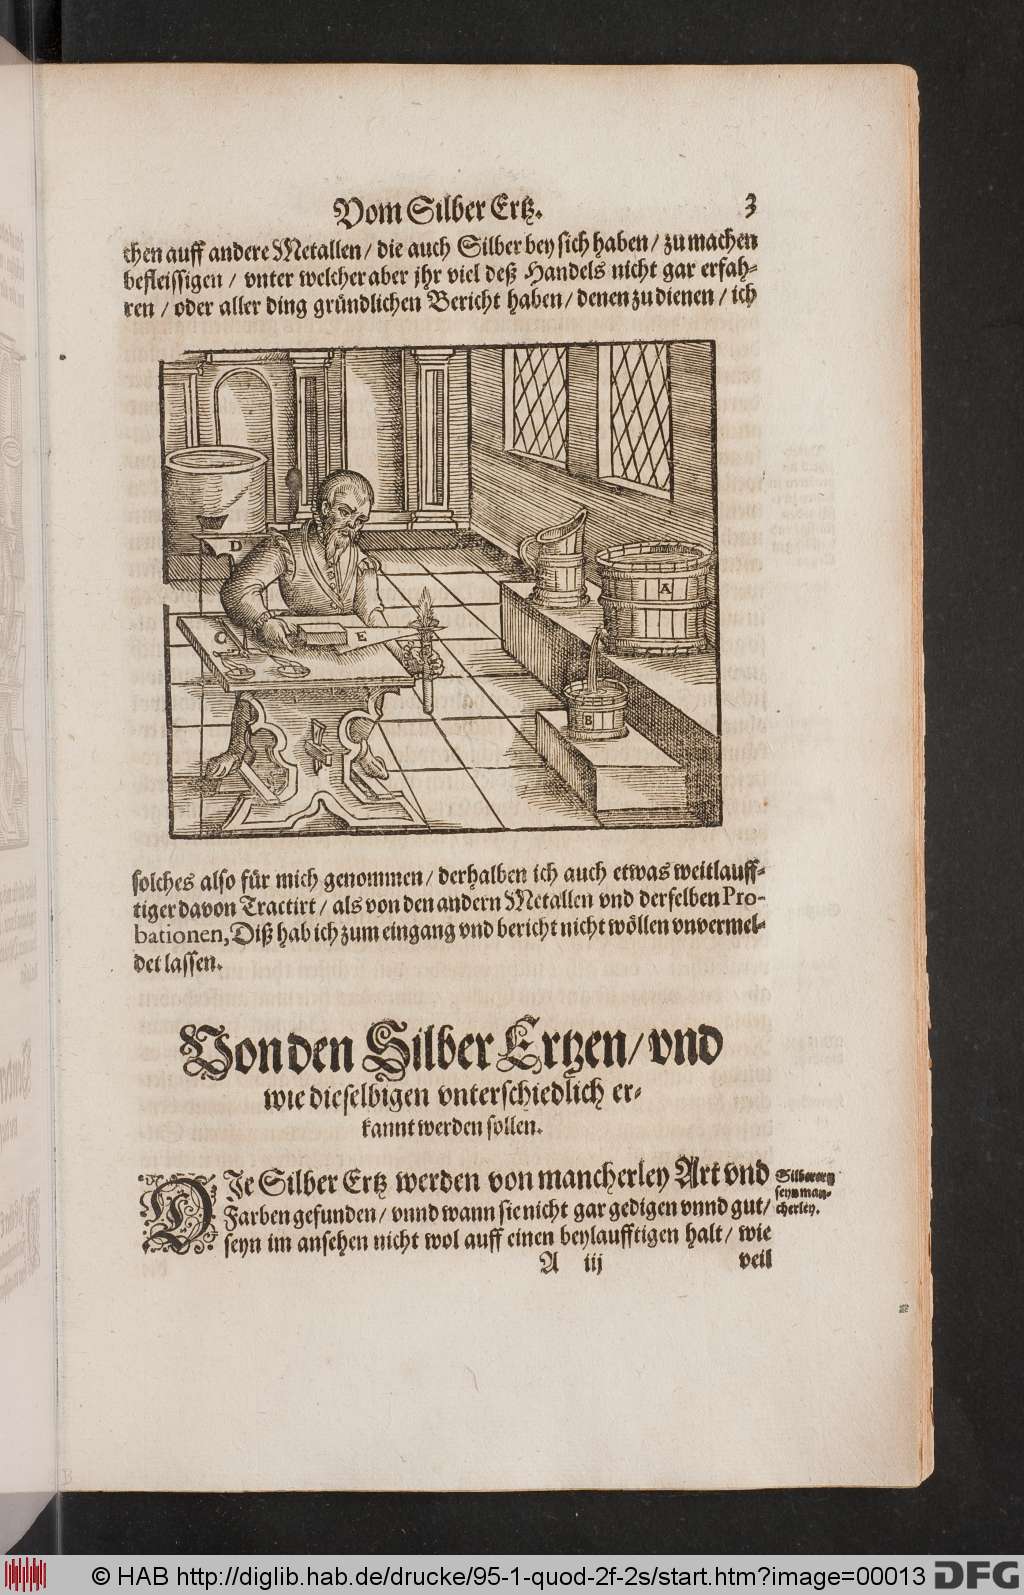 Vom Silber Ertz.
3
chen auff andere Metallen / die auch Silber bey sich haben / zu machen
befleissigen / vnter welcher aber jhr viel deß Handels nicht gar erfah-
ren / oder aller ding gründlichen Bericht haben / denen zu dienen / ich
D
A
C
E
B
solches also für mich genommen / derhalben ich auch etwas weitlauff-
tiger davon Tractirt / als von den andern Metallen vnd derselben Pro-
bationen, Diß hab ich zum eingang vnd bericht nicht wöllen vnvermel-
det lassen.
Von den Silber Ertzen / vnd
wie dieselbigen vnterschiedlich er-
kannt werden sollen.
DJe Silber Ertz werden von mancherley Art vnd
Farben gefunden / vnnd wann sie nicht gar gedigen vnnd gut /
seyn im ansehen nicht wol auff einen beylaufftigen halt / wie
Silberertz
seyn man-
cherley.
A iij
veil
© HAB http://diglib.hab.de/drucke/95-1-quod-2f-2s/start.htm?image=00013
DFG